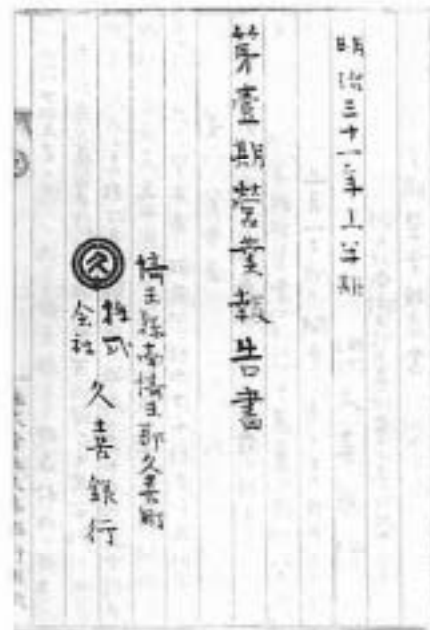 明治三十一年上半期
第壹期營業報告書
埼玉縣南埼玉郡久喜町
久
株式
会社
久喜銀行